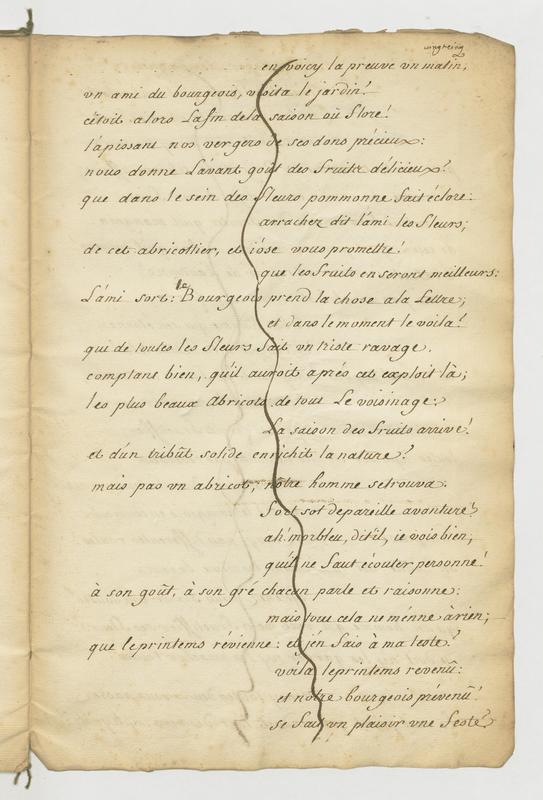 vingtcinq
en voicy la preuve vn matin,
vn ami du bourgeois, visita le jardin!
c'étoit alors La fin dela saison où flore!
tapissant nos vergers de ses dons précieux:
nous donne L'avant goût des fruits délicieux?
que dans le sein des fleurs pommonne fait éclore:
arrachez dit l'ami les fleurs;
de cet abricottier, et j'ose vous promettre!
que les fruits en seront meilleurs:
L'ami sort: le Bourgeois prend la chose a la Lettre;
et dans le moment le voila!
qui de toutes les fleurs fait vn triste ravage.
comptant bien, qu'il auroit aprés cet exploit là;
les plus beaux abricots de tout Le voisinage:
La saison des fruits arrivé!
et d'un tribût solide enrichit la nature?
mais pas vn abricot, nôtre homme se trouva:
fort sot de pareille avanture?
ah! morbleu, dit'il, ie vois bien;
qu'il ne faut écouter personne!
à son goût, à son gré chacun parle et raisonne:
mais tout cela ne ménne à rien;
que le printems révienne: et j'én fais à ma teste?
voila le printems revenû:
et nôtre bourgeois prévenû!
se fait vn plaisir vne feste?